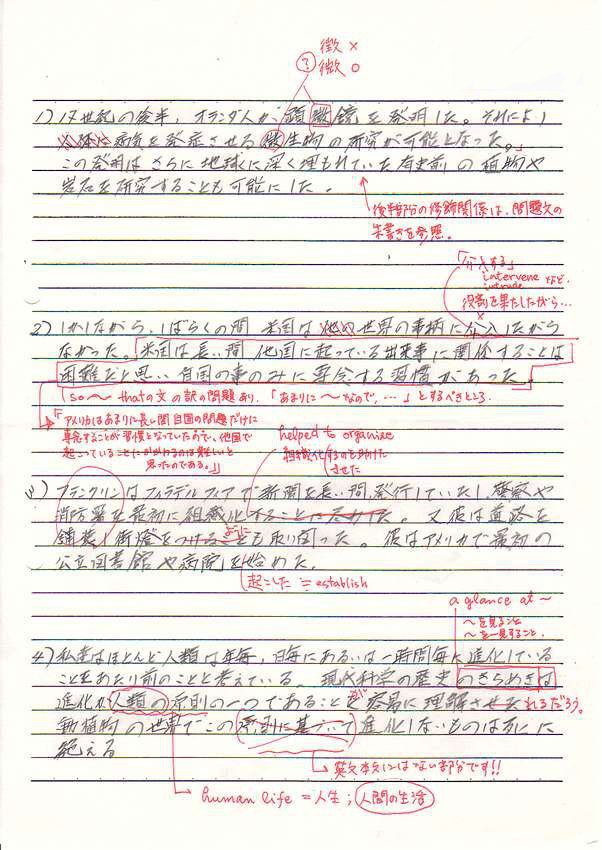 徴×
? 微○
1) 17世紀の後半, オランダ人が顕微鏡を発明した。それにより
病気を発症させる微生物の研究が可能となった。
この発明はさらに地球に深く埋もれていた有史前の植物や
岩石を研究することも可能にした。
後半部分の修飾関係は、問題文の
朱書きを参照。
「介入する」
intervene など、
intrude
役割を果たしたがら…
2) しかしながら, しばらくの間 米国は 世界の事柄に介入したがら
なかった。米国は長い間 他国に起っている出来事に関係することは
困難だと思い 自国の事のみに専念する習慣があった。
so～thatの文の訳の問題あり、「あまりに～なので、…」とするべきところ。
「アメリカはあまりに長い間自国の問題だけに
専念することが習慣となっていたので、他国で
起こっていることに のは難しいと
思ったのである。」
helped to organize
組織化するのを助けた
させた
3) フランクリンはフィラデルフィアで新聞を長い間発行していたし, 警察や
消防署を最初に組織化することに た。又彼は道路を
舗装し街燈をつけることも取り図った。彼はアメリカで最初の
公立図書館や病院を始めた。
起こした = establish
a glance at ～
～を見ること
～を一見すること.
4) 私達はほとんど人類は年毎, 日毎にあるいは一時間毎に進化している
ことをあたり前のことと考えている。現代科学の歴史のきらめきは
進化が人類の原則の一つであることを容易に理解させ れるだろう。
動植物の世界でこの原則に基づいて進化しないものは死に
絶える
英文本文にはない部分です!!
human life = 人生 ; 人間の生活